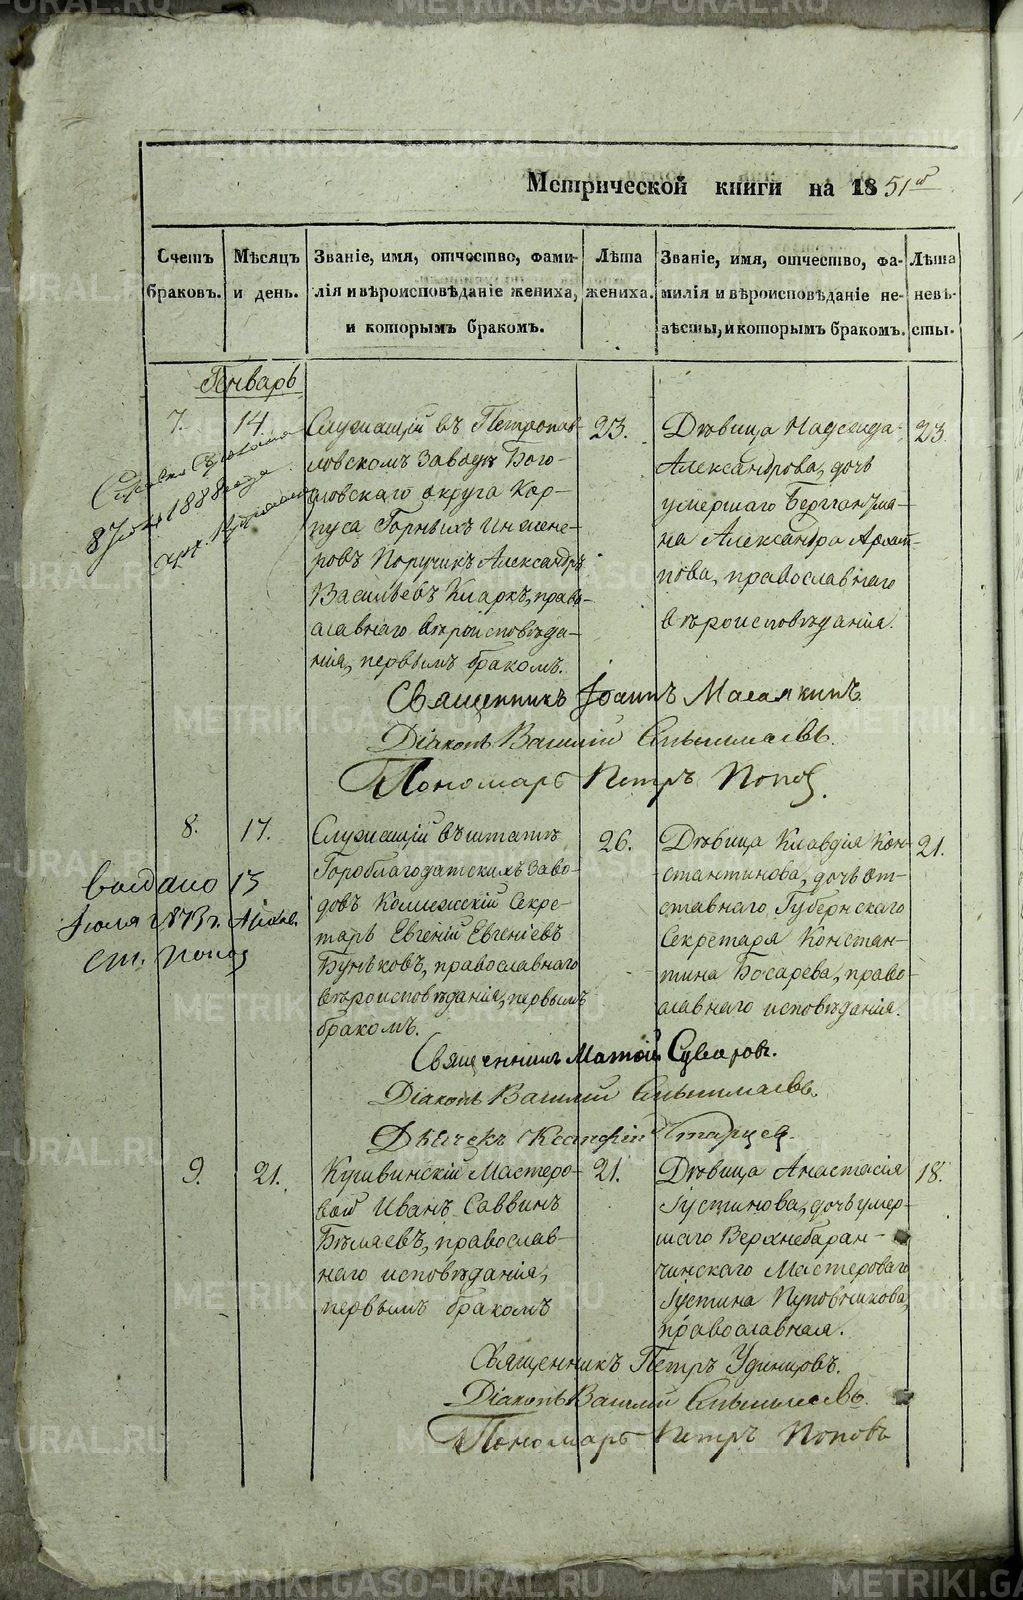 Метрической книги на 1851й
Счетъ браковъ.
Мѣсяцъ и день.
Званіе, имя, отчество, фами-
лія и вѣроисповѣданіе жениха,
и которымъ бракомъ.
Лѣта
жениха.
Званіе, имя, отчество, фа-
милія и вѣроисповѣданіе не-
вѣсты, и которымъ бракомъ.
Лѣта
невѣ-
сты.
Генварь
7.
14.
Служащій въ Петропав-
ловскомъ заводѣ Бого-
словскаго округа Кор-
пуса Горныхъ Инжене-
ровъ Поручикъ Александръ
Васильевъ Кларкъ, право-
славнаго вѣроисповѣда-
нія, первымъ бракомъ.
23.
Дѣвица Надежда
Александрова, дочь
умершаго Берггаубма-
на Александра Архип-
пова, православнаго
вѣроисповѣданія.
23
8 1888 года
Священникъ Іоаннъ Масалкинъ
Діаконъ Василій
Пономарь Петръ Попов.
8.
17.
Служащій въ штатѣ
Гороблагодатскихъ заво-
довъ Коллежскій Секре-
тарь Евгеній Евгеніевъ
Буньковъ, православнаго
вѣроисповѣданія, первымъ
бракомъ.
26.
Дѣвица Клавдія Кон-
стантинова, дочь от-
ставнаго Губернскаго
Секретаря Констан-
тина Босарева, право-
славнаго исповѣданія.
21.
выдано 13
Іюля 1873 г.
Попов
Священникъ Матѳій Суворовъ.
Діаконъ Василій
Дьячекъ Старцев.
9.
21.
Кушвинскій Мастеро-
вой Иванъ Саввинъ
Бѣляевъ, православ-
наго исповѣданія,
первымъ бракомъ
21.
Дѣвица Анастасія
Іустинова, дочь умер-
шаго Верхнебаран-
чинскаго Мастероваго
Іустина Пуповникова,
православная.
18.
Священникъ Петръ Удинцовъ.
Діаконъ Василій
Пономарь Петръ Поповъ
METRIKI.GASO-URAL.RU